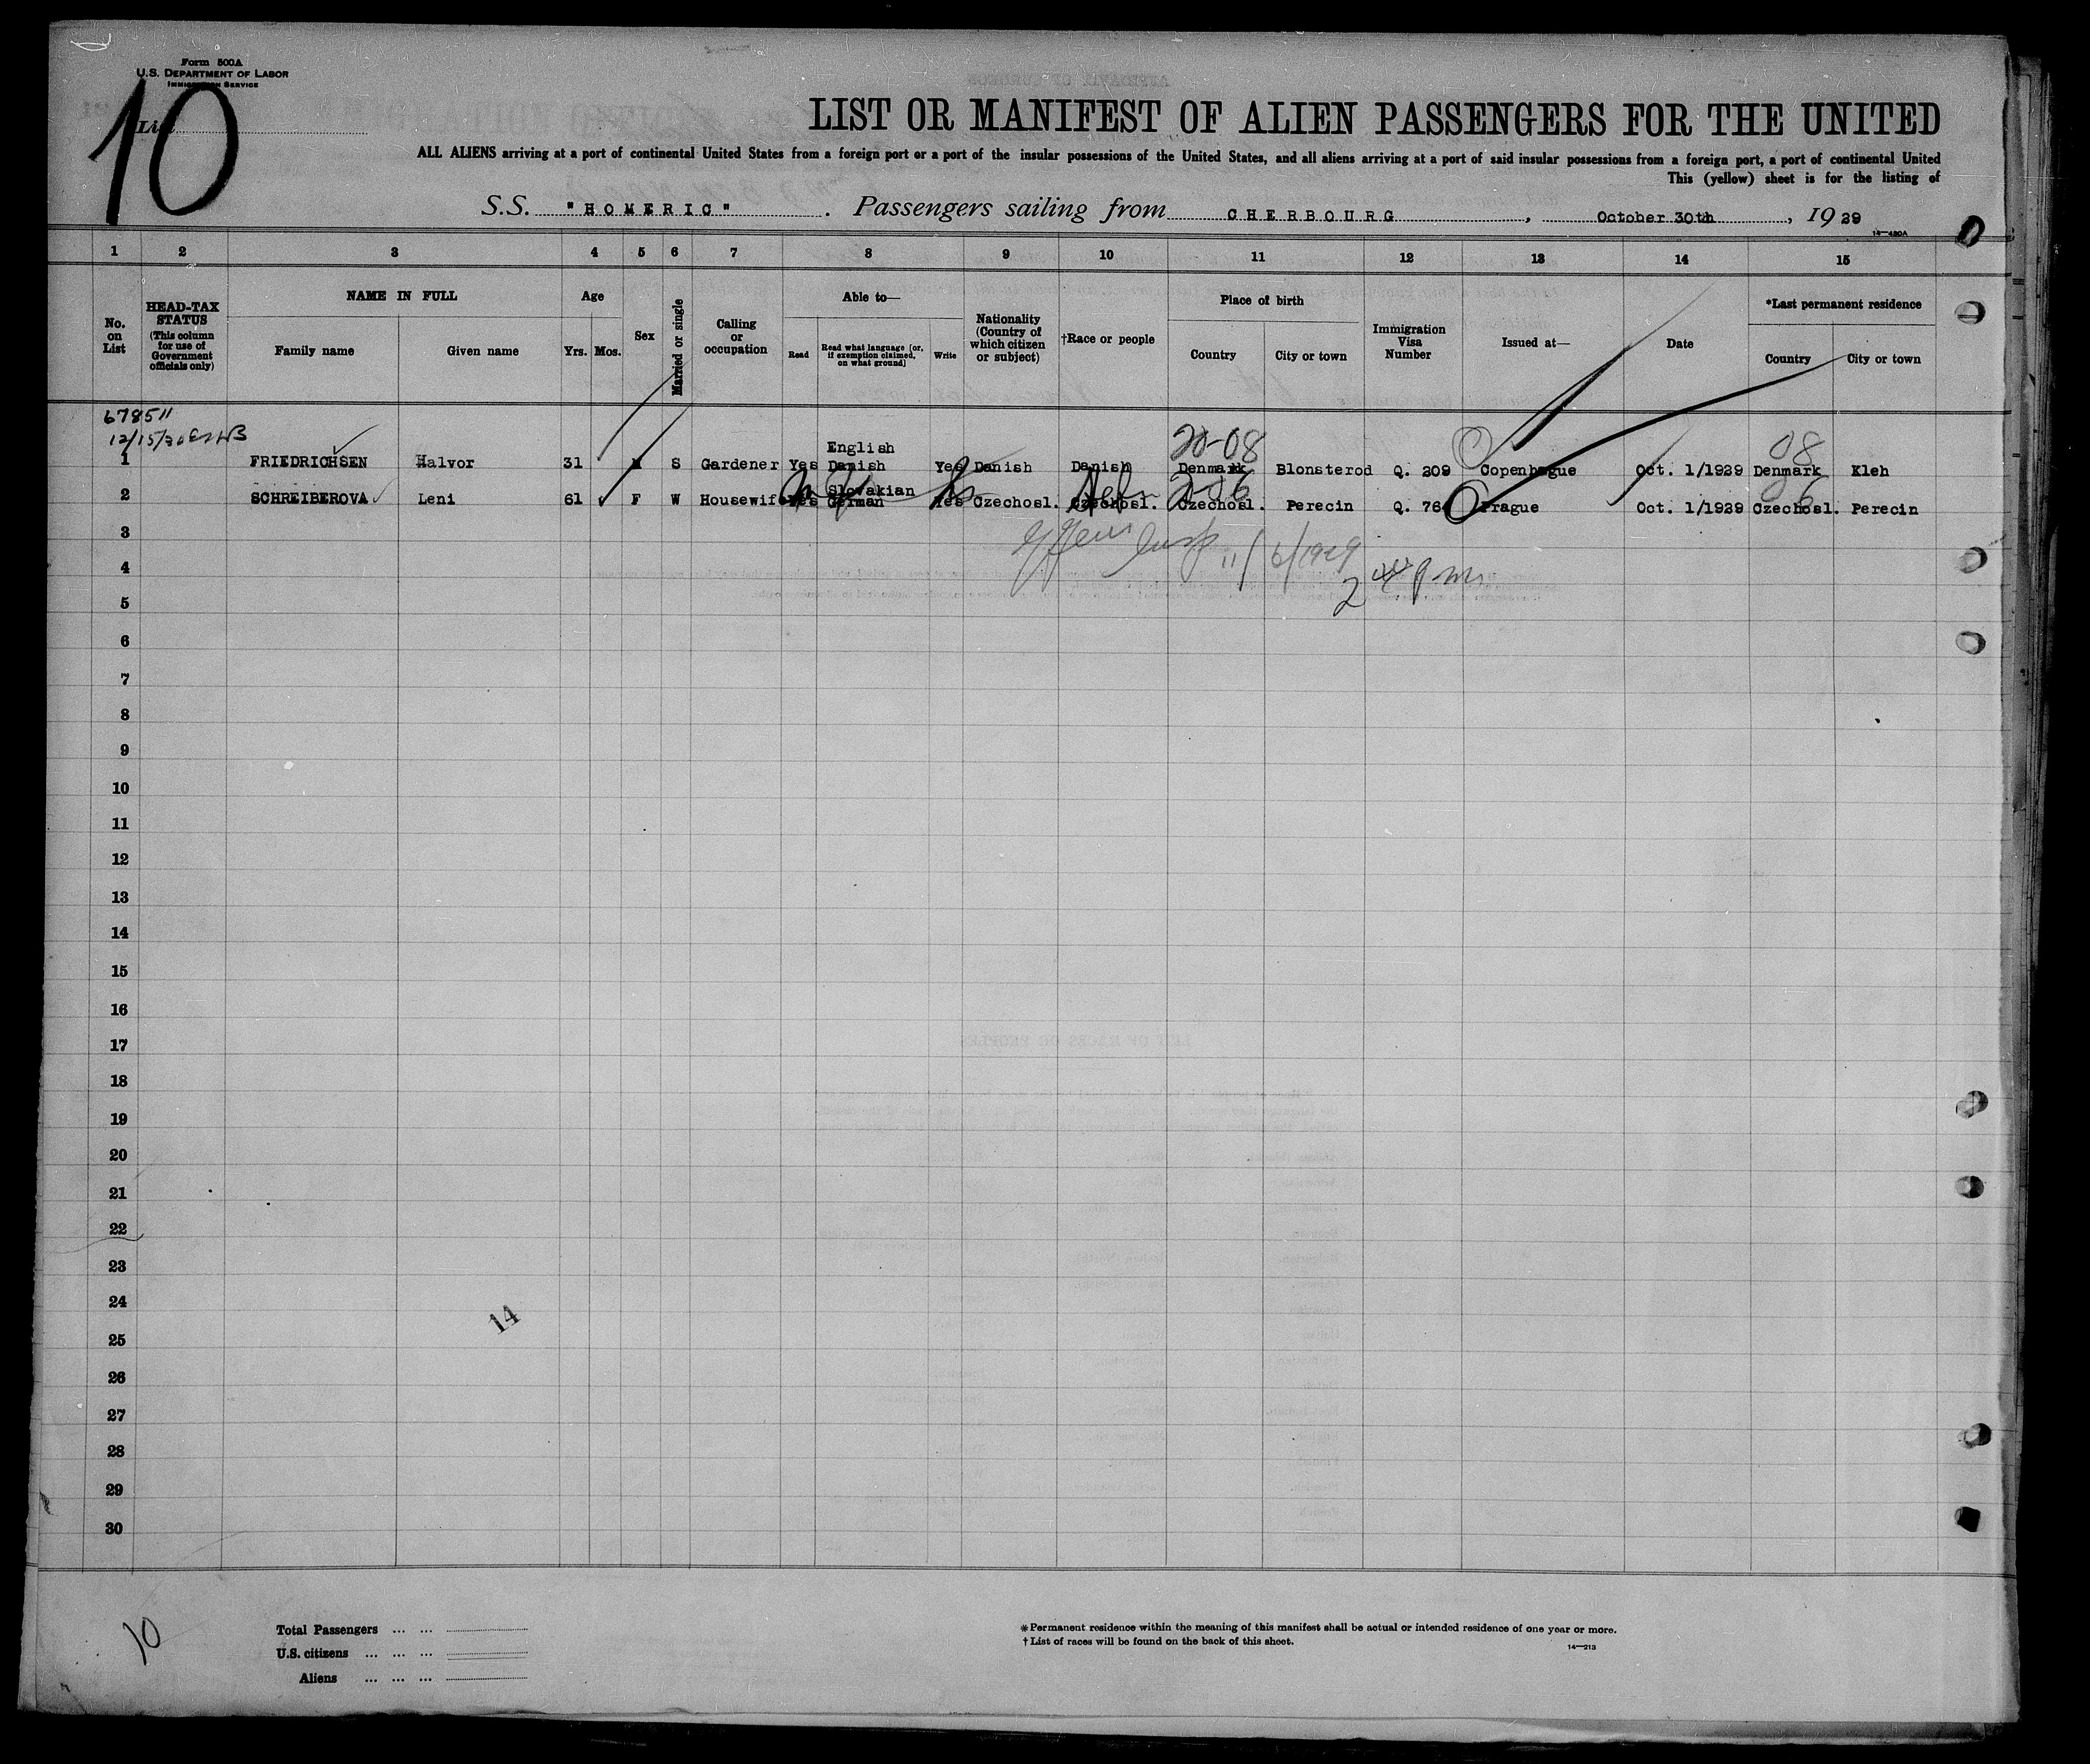 Form 500A
U.S. DEPARTMENT OF LABOR
IMMIGRATION SERVICE
List
10
LIST OR MANIFEST OF ALIEN PASSENGERS FOR THE UNITED
ALL ALIENS arriving at a port of continental United States from a foreign port or a port of the insular possessions of the United States, and all aliens arriving at a port of said insular possessions from a foreign port, a port of continental United
This (yellow) sheet is for the listing of
S.S. "HOMERIC". Passengers sailing from CHERBOURG, October 30th, 1929
14—430A
1 2 3 4 5 6 7 8 9 10 11 12 13 14 15
No. on List
HEAD-TAX STATUS (This column for use of Government officials only)
NAME IN FULL
Family name Given name
Age
Yrs. Mos.
Sex
Married or single
Calling or occupation
Able to—
Read Read what language [or, if exemption claimed, on what ground] Write
Nationality (Country of which citizen or subject)
†Race or people
Place of birth
Country City or town
Immigration Visa Number
Issued at—
Date
*Last permanent residence
Country City or town
678511
12/15/30
20-08 08
English
1 FRIEDRICHSEN Halvor 31 M S Gardener Yes Danish Yes Danish Danish Denmark Blonsterod Q. 209 Copenhague Oct. 1/1929 Denmark Kleh
Slovakian
2 SCHREIBEROVA Leni 61 F W Housewife Yes German Yes Czechosl. Czechosl. Czechosl. Perecin Q. 76 Prague Oct. 1/1929 Czechosl. Perecin
Heb
11/6/1929
3
4
5
6
7
8
9
10
11
12
13
14
15
16
17
18
19
20
21
22
23
24
14
25
26
27
28
29
30
10
Total Passengers ... ...
U.S. citizens ... ... ...
Aliens ... ... ...
*Permanent residence within the meaning of this manifest shall be actual or intended residence of one year or more.
†List of races will be found on the back of this sheet.
14—213